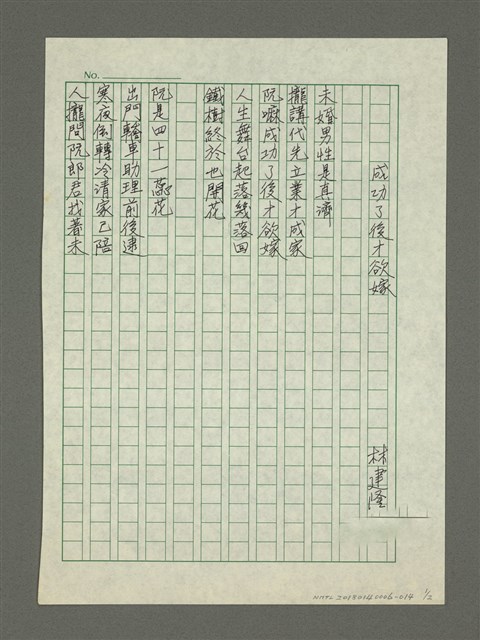 No.
成功了後才欲嫁
林建隆
未婚男性是真濟
攏講代先立業才成家
阮嘛成功了後才欲嫁
人生舞台起落幾落回
鐵樹終於也開花
阮是四十一蕊花
出門轎車助理前後逮
寒夜倒轉冷清家己陪
人攏問阮郎君找著未
NMTL 20180140006-014 1/2